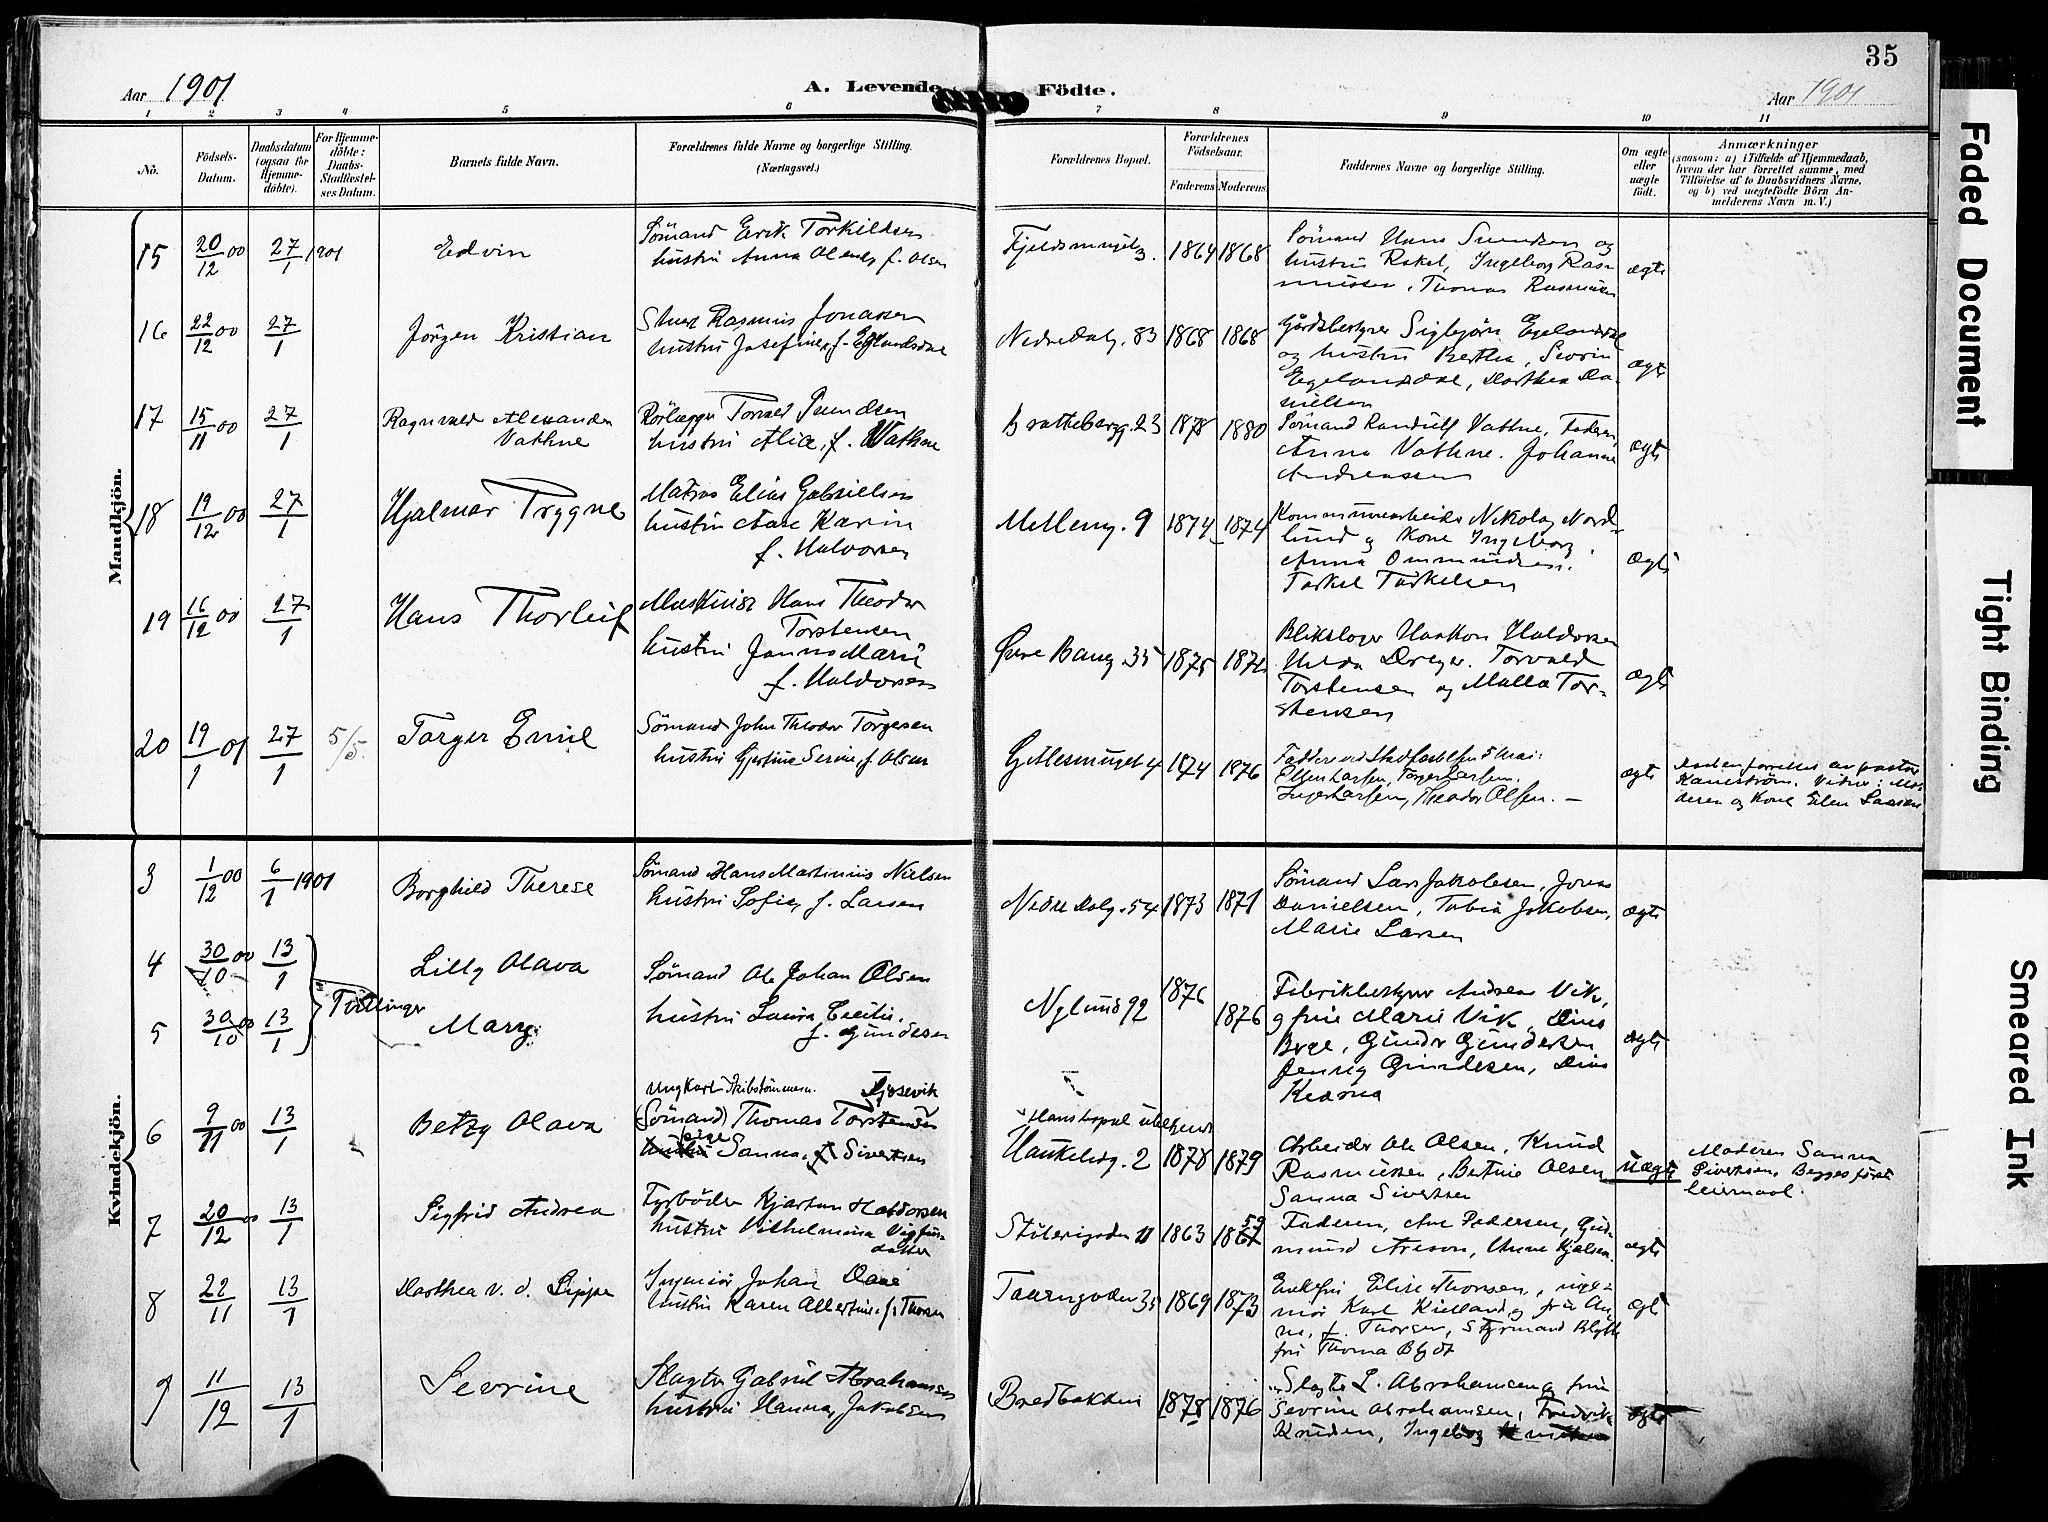 35
Aar 1901
A. Levende Födte.
Aar 1901
1 2 3 4 5 6 7 8 9 10 11
No.
Födsels-
Datum.
Daabsdatum
(ogsaa for
Hjemme-
döbte).
For Hjemme-
döbte:
Daabs-
Stadfæstel-
ses Datum.
Barnets fulde Navn.
Forældrenes fulde Navne og borgerlige Stilling.
(Næringsvei.)
Forældrenes Bopæl.
Forældrenes
Födselsaar.
Faderens Moderens
Faddernes Navne og borgerlige Stilling.
Om ægte
eller
uægte
födt.
Anmærkninger
(saasom: a) i Tilfælde af Hjemmedaab,
hvem der har forrettet samme, med
Tilföielse af to Daabsvidners Navne,
og b) ved uegtefödte Börn An-
melderens Navn m. V.)
Mandkjön.
15 20/12 00 27/1 1901 Edvin
Sömand Erik Torkildsen
hustru Anna Olene, f. Olsen
1864 1868
Sömand Hans Svendsen og
hustru Rakel, Ingeborg Ras-
mussen, Thomas Rasmussen
ægte
16 22/12 00 27/1 Jörgen Kristian
Rasmus Jonassen
hustru Josefine, f. Egelandsdal
Nedre Dalg. 83 1868 1868
Gårdsbestyrer Sigbjörn Egelandsdal
og hustru Bertha, Severin
Egelandsdal, Dorthea Da-
nielsen
ægte
17 15/11 00 27/1 Ragnvald Alexander
Vathne
Rörlægger Torvald Svendsen
hustru Alice, f. Wathne
Brattebergg. 23 1878 1880
Sömand Randulf Vathne, Faderen,
Anna Vathne, Johanne
Andreassen
ægte
18 19/12 00 27/1 Hjalmar Trygve
Matros Elias Gabrielsen
hustru Aase Karin
f. Halvorsen
Mellemg. 9 1874 1874
Kommunearbeider Nikolay Nord-
lund og Kone Ingeborg,
Anna Ommundsen,
Torkel Torkelsen
Ægte
19 16/12 00 27/1 Hans Thorleif
Maskinist Hans Theodor
Torstensen
hustru Janna Marie
f. Haldorsen
Øvre Bang. 35 1875 1872
Blikslager Haakon Haldorsen
Hilda Dreyer, Torvald
Torstensen og Malla Tor-
stensen
Ægte
20 19/1 01 27/1 5/5 Torger Emil
Sömand John Theodor Torgersen
hustru Gjertine Serine, f. Olsen
Gjetlesmuget 4 1874 1876
Faddere ved Stadfæstelsen 5 Mai:
Ellen Larsen, Torger Larsen,
Inger Larsen, Theodor Olsen. –
ægte
Daaben forrettet av pastor
Kanestrøm. Vidner: Mo-
deren og Kone Ellen Larsen
Kvindekjön.
3 1/12 00 6/1 1901 Borghild Therese
Sömand Hans Martinius Nielsen
hustru Sofie, f. Larsen
Nedre Dalg. 54 1873 1871
Sömand Lars Jakobsen, Jonas
Danielsen, Tobia Jakobsen,
Marie Larsen
ægte
4 30/10 00 13/1 Lilly Olava
Tvillinger
5 30/10 00 13/1 Marry
Sömand Ole Johan Olsen
hustru Laura Cecilie,
f. Gundersen
Nylund 92 1876 1876
Fabrikbestyrer Andreas Vik,
og frue Marie Vik, Dina
Berge, Gunder Gundersen
Jenny Gundersen, Dina
Kverna
ægte
6 9/11 00 13/1 Betzy Olava
Ungkarl Skibstømmerm. Gjosevik
(Sömand) Thomas Torstensen
hustru pige Sanna, f. Sivertsen
Hans bopæl ubekjendt
Haukelidg. 2 1878 1879
Arbeider Ole Olsen, Knud
Rasmussen, Bertine Olsen
Sanna Sivertsen
uægte
Moderen Sanna
Sivertsen, Begges förste
leiermaal.
7 20/12 00 13/1 Sigfrid Andrea
Fyrböder Kjartan Haldorsen
hustru Vilhelmina Vigfus-
datter
11 1863 1867 59
Faderen, Are Pedersen, Gud-
mund Areson, Anne Kjelsen
ægte
8 22/11 13/1 Dorthea v. d. Lippe
Ingeniör Johan Dane
hustru Karen Albertine, f. Thorsen
Taarngaden 35 1869 1873
Enkefru Elise Thorsen, inge-
niör Karl Kielland og frue An-
na, f. Thorsen, Styrmand Blydt
fru Thoma Blydt
ægte
9 11/12 13/1 Sevrine
Slagter Gabriel Abrahamsen
hustru Hanna, Jakobsen
Bredbakken 1878 1876
Slagter L. Abrahamsen og frue
Sevrine Abrahamsen, Fredrik
Knudsen, Ingeborg Knudsen
ægte
Faded Document
Tight Binding
Smeared Ink